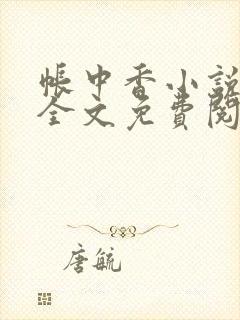 帳中香小說
全文免費閱
唐毓